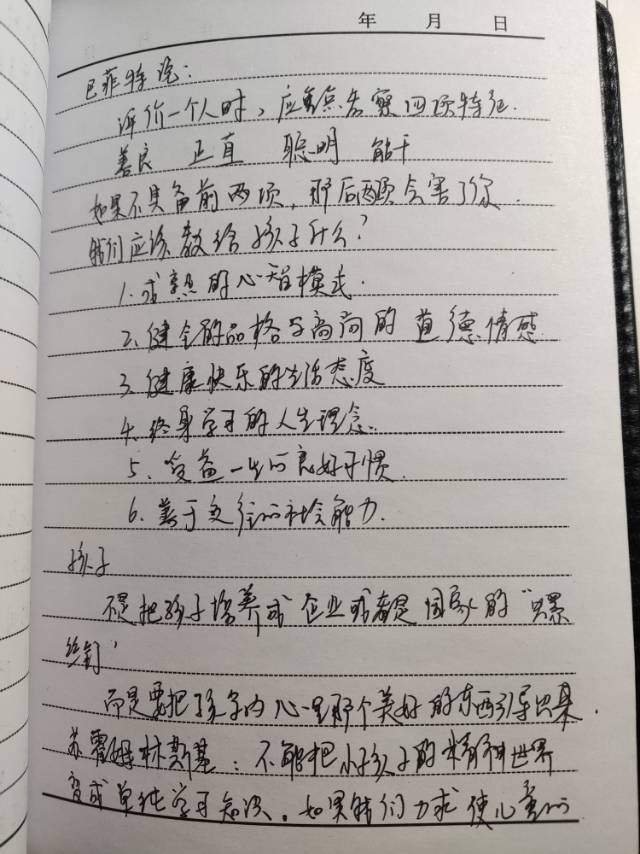 年 月 日
巴菲特说：
评价一个人时，应重点考察四项特征.
善良 正直 聪明 能干
如果不具备前两项，那后两项会害了你.
我们应该教给孩子什么？
1.成熟的心智模式.
2、健全的品格与高尚的道德情感
3、健康快乐的生活态度
4、终身学习的人生理念.
5、受益一生的良好习惯.
6、善于交往的社会能力.
孩子
不是把孩子培养成企业或者是国家的“螺
丝钉”
而是要把孩子内心里那个美好的东西引导出来.
苏霍姆林斯基：不能把小孩子的精神世界
变成单纯学习知识。如果我们力求使儿童的